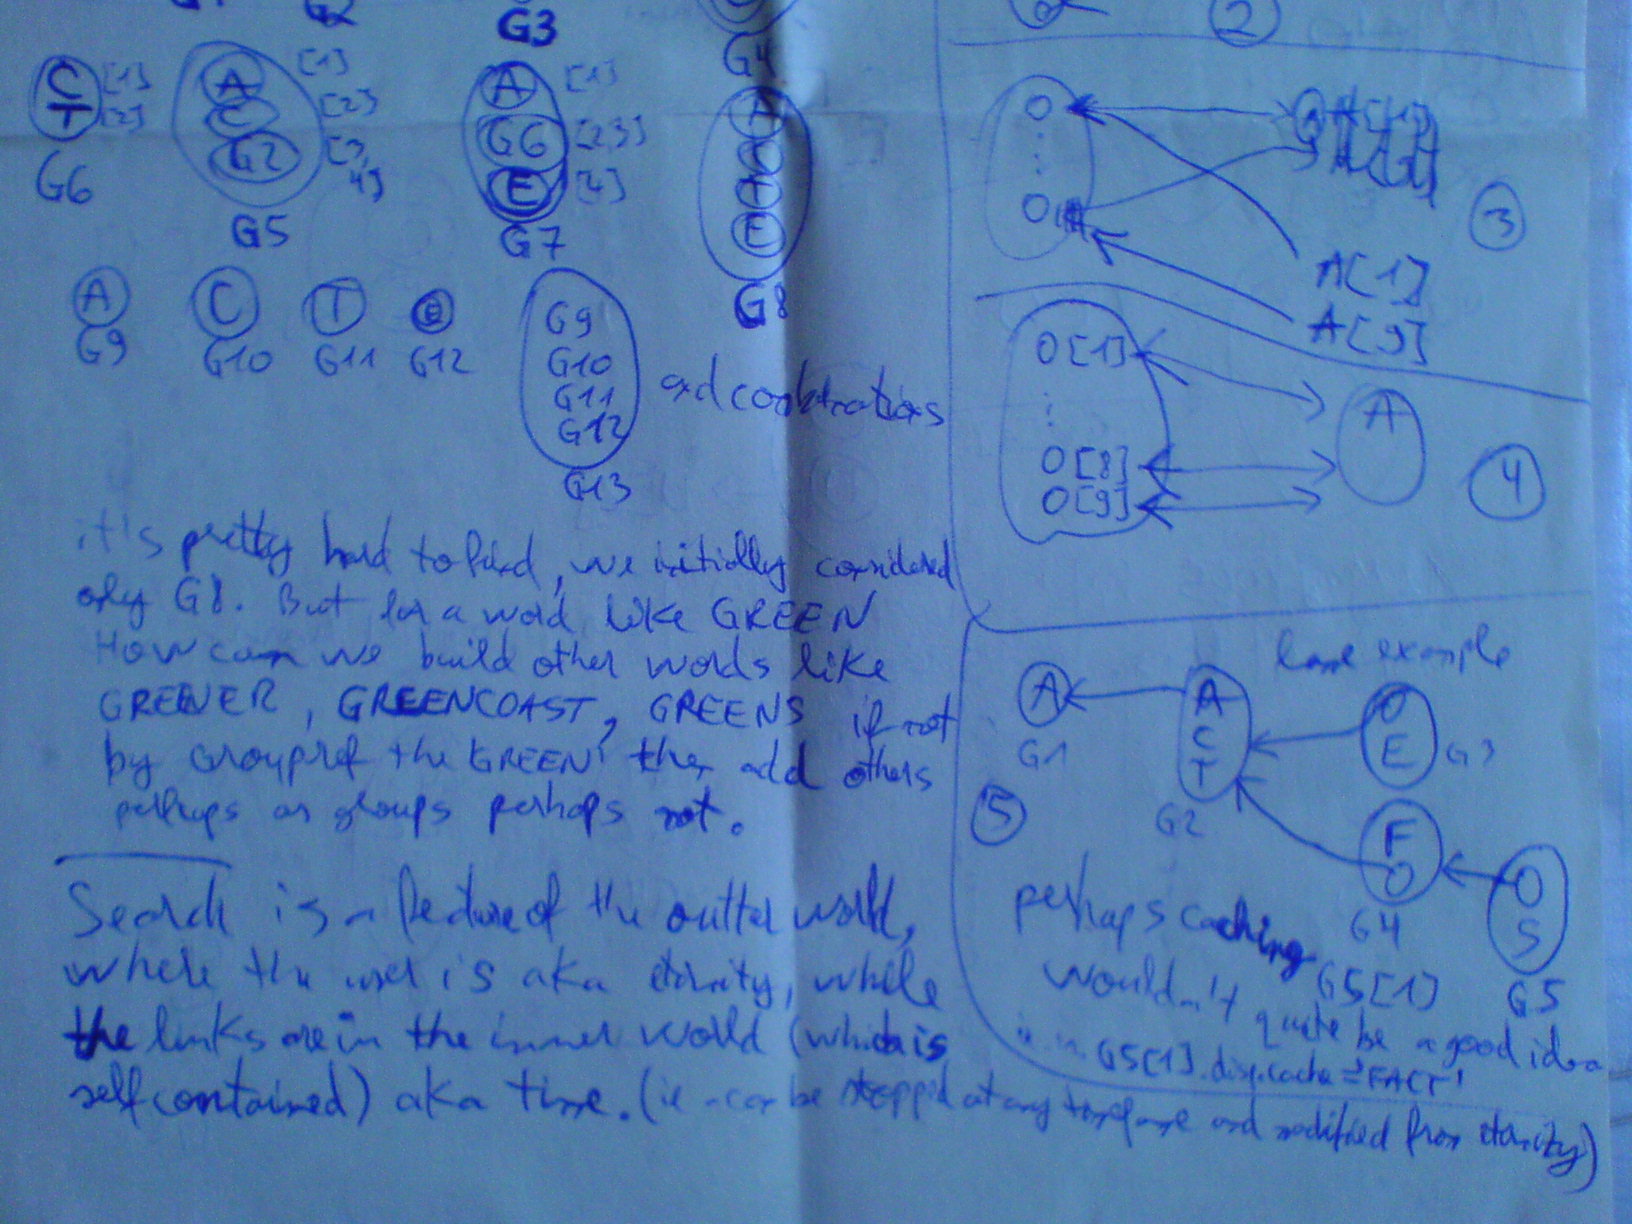 G3
G4
C [1]
T [2]
G6
A [1]
C [2]
G2 [3,
4]
G5
A [1]
G6 [23]
E [4]
G7
G8
A
G9
C
G10
T
G11
E
G12
G9
G10
G11
G12
G13
and combinations
it's pretty hard to find, we initially considered
only G8. But for a word like GREEN
How can we build other words like
GREENER, GREENCOAST, GREENS if not
by the GREEN then add others
perhaps as groups perhaps not.
Search is a feature of the outter world,
where the user is aka eternity, while
the links are in the inner world (which is
selfcontained) aka time. (ie can be stopped at any timeframe and modified from eternity)
2
O
O
A[1]
A[9]
3
O[1]
O[8]
O[9]
A
4
same example
A
G1
A
C
T
G2
O
E
G3
F
O
G4
O
S
G5
5
perhaps caching G5[1]
wouldn't quite be a good idea
G5[1].disp.cache='FACT'